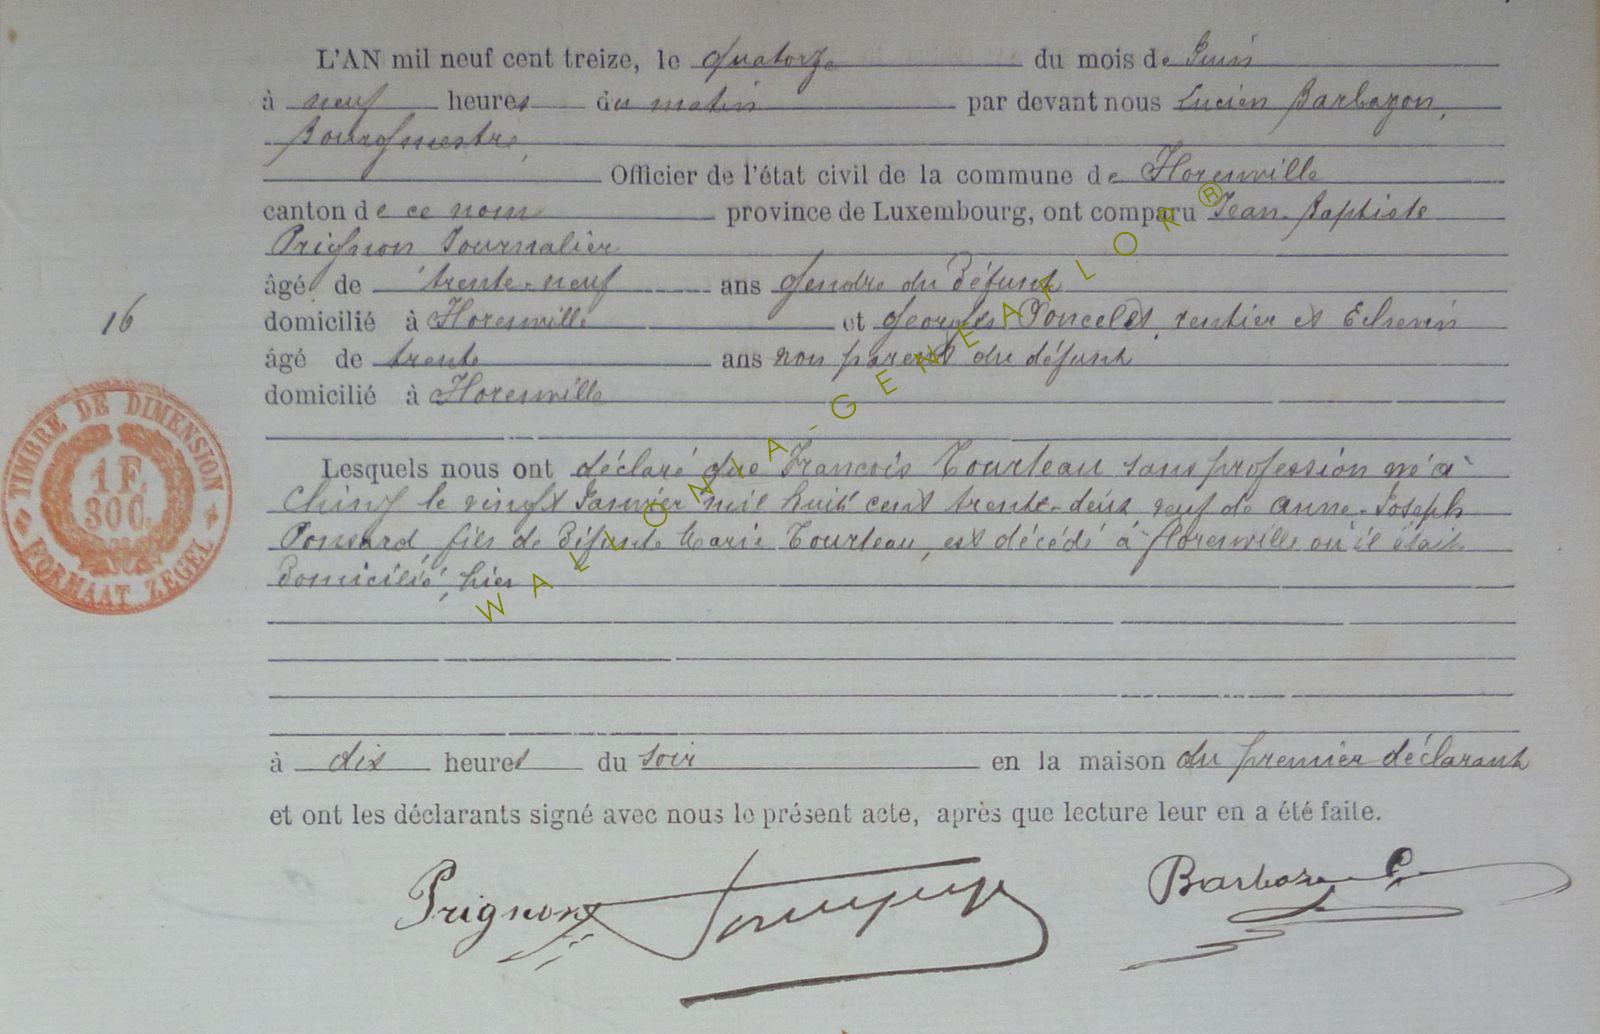 L'AN mil neuf cent treize, le quatorze du mois de Juin
à neuf heures du matin par devant nous Lucien Barbazon,
Bourgmestre,
Officier de l'état civil de la commune de Florenville
canton de ce nom province de Luxembourg, ont comparu Jean-Baptiste
Prignon Journalier
âgé de trente-neuf ans gendre du Défunt
16
domicilié à Florenville et Georges Poncelet, rentier et Echevin
âgé de trente ans non parent du défunt
domicilié à Florenville
Lesquels nous ont déclaré que François Tourteau sans profession né à
Chiny le vingt Janvier mil huit cent trente-deux veuf de Anne-Joseph
Ponsard, fils de Défunte Marie Tourteau, est décédé à florenville où il était
Domicilié, hier
TIMBRE DE DIMENSION
1 F.
30C.
FORMAAT ZEGEL
à dix heures du soir en la maison du premier déclarant
et ont les déclarants signé avec nous le présent acte, après que lecture leur en a été faite.
Prignon Barbazon
WALLONIA-GENEAFLOR®